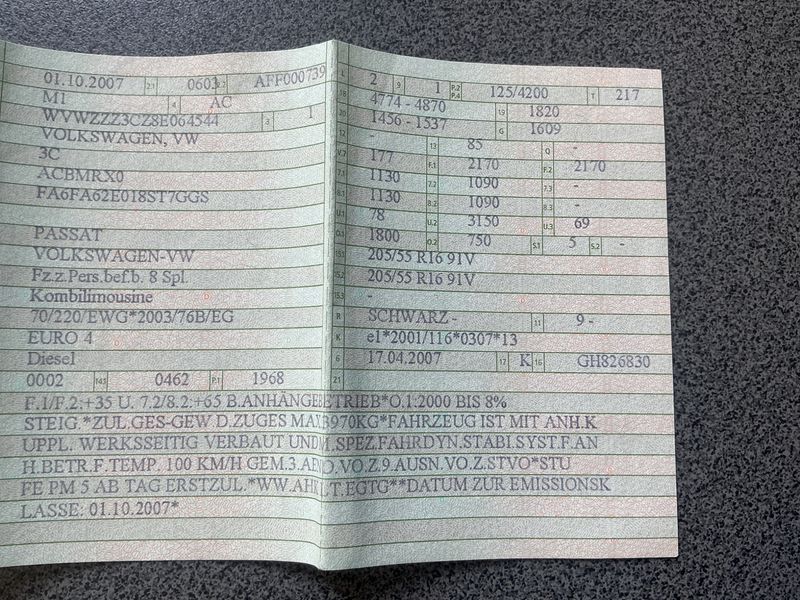 01.10.2007 2.1 0603 2.2 AFF000739
M1 4 AC
WVWZZZ3CZ8E064544 3 1
VOLKSWAGEN, VW
3C
ACBMRX0
FA6FA62E018ST7GGS
PASSAT
VOLKSWAGEN-VW
Fz.z.Pers.bef.b. 8 Spl.
Kombilimousine
70/220/EWG*2003/76B/EG
EURO 4
Diesel
0002 14.1 0462 P.1 1968
L 2 9 1 P.2 P.4 125/4200 T 217
18 4774 - 4870 19 1820
20 1456 - 1537 G 1609
12 - 13 85 Q -
V.7 177 F.1 2170 F.2 2170
7.1 1130 7.2 1090 7.3 -
8.1 1130 8.2 1090 8.3 -
U.1 78 U.2 3150 U.3 69
O.1 1800 O.2 750 S.1 5 S.2 -
15.1 205/55 R16 91V
15.2 205/55 R16 91V
15.3 -
R SCHWARZ - 11 9 -
K e1*2001/116*0307*13
6 17.04.2007 17 K 16 GH826830
21
F.1/F.2:+35 U. 7.2/8.2:+65 B.ANHÄNGEBETRIEB*O.1:2000 BIS 8%
STEIG.*ZUL.GES-GEW D.ZUGES MAX.3970KG*FAHRZEUG IST MIT ANH.K
UPPL. WERKSSEITIG VERBAUT UND M.SPEZ.FAHRDYN.STABI.SYST.F.AN
H.BETR.F.TEMP. 100 KM/H GEM.3.AEND.VO.Z.9.AUSN.VO.Z.STVO*STU
FE PM 5 AB TAG ERSTZUL.*WW.AHK LT.EGTG**DATUM ZUR EMISSIONSK
LASSE: 01.10.2007*